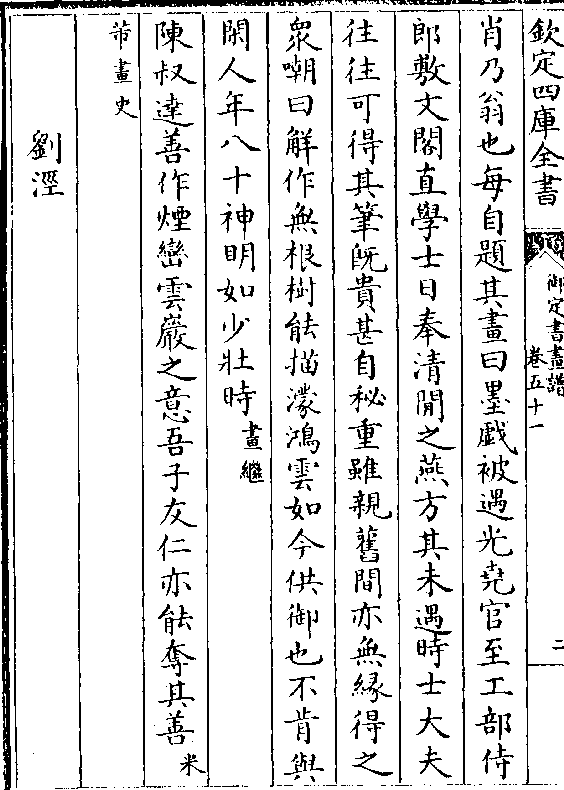 欽定四庫全書
御定書畫譜
卷五十一
二
肖乃翁也每自題其畫曰墨戲被遇光堯官至工部侍
郎敷文閣直學士日奉清閒之燕方其未遇時士大夫
往往可得其筆既貴甚自秘重雖親舊間亦無緣得之
衆嘲曰解作無根樹能描濛鴻雲如今供御也不肯與
閑人年八十神明如少壯時畫繼
陳叔達善作煙巒雲巖之意吾子友仁亦能奪其善米
芾畫史
劉涇